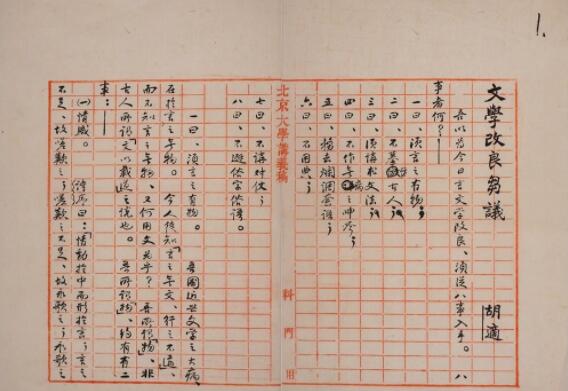 1.
文學改良芻議
胡適
吾以為今日言文學改良、須從八事入手。八
事者何？
一曰、須言之有物；
二曰、不摹倣古人；
三曰、須講求文法；
四曰、不作無病之呻吟；
五曰、務去爛調套語；
六曰、不用典；
七曰、不講對仗；
八曰、不避俗字俗語。
北京大學講義稿
科 門 用
一曰、須言之有物。 吾國近世文學之大病、
在於言之無物。今人徒知「言之無文、行之不遠」、
而不知言之無物、又何用文為乎？吾所謂「物」、非
古人所謂「文以載道」之說也。吾所謂「物」、約有二
事：
（一）情感。 詩序曰：「情動於中而形於言。言之
不足、故嗟歎之；嗟歎之不足、故永歌之；永歌之